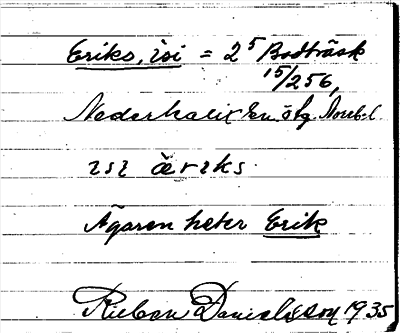 Eriks, isi = 2⁵ Bodträsk
15/256,
Nederkalix sn, ög. Norrb. l.
isi äriks.
Ägaren heter Erik
Ruben Danielsson 1935